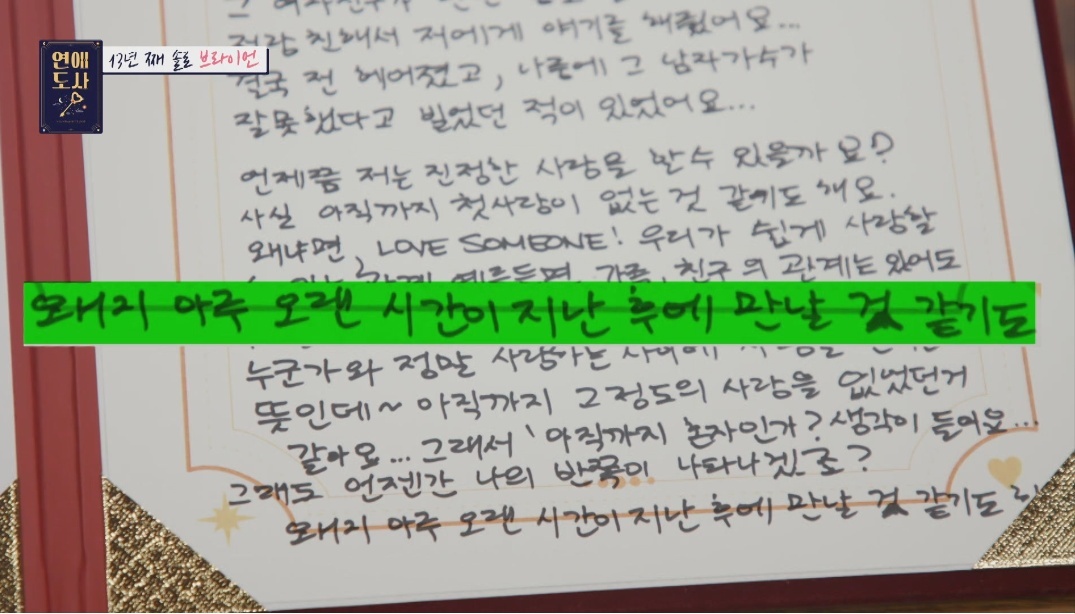 연애
도사
13년 째 솔로 브라이언
그 여자친구가
저랑 친해서 저에게 얘기를 해줬어요...
결국 전 헤어졌고, 나중에 그 남자가수가
잘못했다고 빌었던 적이 있었어요...
언제쯤 저는 진정한 사랑을 할 수 있을까요?
사실 아직까지 첫사랑이 없는 것 같기도 해요.
왜냐면, LOVE SOMEONE! 우리가 쉽게 사랑할
예를들면, 가족, 친구의 관계는 있어도
왠지 아주 오랜 시간이 지난 후에 만날 것 같기도
누군가와 정말 사랑하는 사이에
뜻인데~ 아직까지 그정도의 사랑을 없었던거
같아요... 그래서 '아직까지 혼자인가? 생각이 들어요...
그래도 언젠간 나의 반쪽이 나타나겠죠?
왠지 아주 오랜 시간이 지난 후에 만날 것 같기도